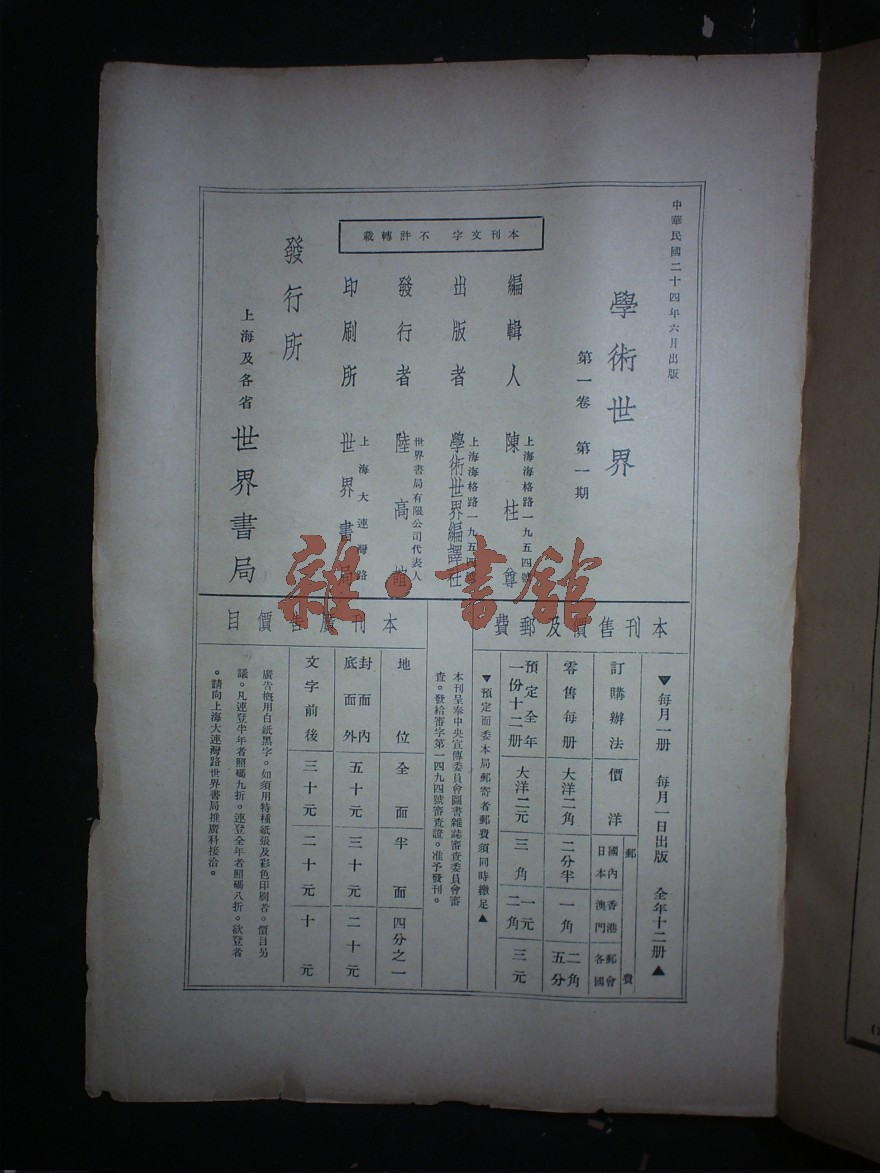 中華民國二十四年六月出版
學術世界
第一卷 第一期
本刊文字 不許轉載
編輯人 陳柱尊
上海海格路一九五四號
出版者 學術世界編譯社
上海海格路一九五四號
發行者 陸高誼
世界書局有限公司代表人
印刷所 世界書局
上海大連灣路
發行所
上海及各省 世界書局
本刊售價及郵費
▼每月一册 每月一日出版 全年十二册▲
訂購辦法 價洋 郵費
國內日本 香港澳門 郵會各國
零售每册 大洋二角 二分半 一角 二角五分
預定全年一份十二册 大洋二元 三角 一元二角 三元
▼預定而委本局郵寄者郵費須同時繳足▲
本刊呈奉中央宣傳委員會圖書雜誌審查委員會審
查。發給審字第一四九四號審查證。准予發刊。
本刊廣告價目
地位 全面 半面 四分之一
封面內底面外 五十元 三十元 二十元
文字前後 三十元 二十元 十元
廣告概用白紙黑字。如須用特種紙張及彩色印刷者。價目另
議。凡連登半年者照碼九折。連登全年者照碼八折。欲登者
。請向上海大連灣路世界書局推廣科接洽。
雜·書館